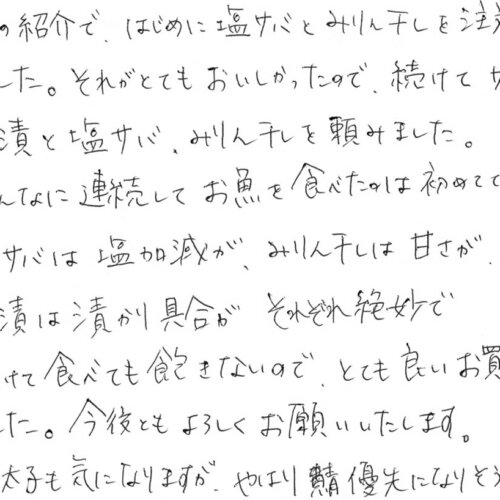 の紹介で、はじめに塩サバとみりん干しを注
した。それがとてもおいしかったので、続けて
漬と塩サバ、みりん干しを頼みました。
んなに連続してお魚を食べたのは初めてで
サバは塩加減が、みりん干しは甘さが、
漬は漬かり具合がそれぞれ絶妙で
けて食べても飽きないので、とても良いお買
した。今後ともよろしくお願いいたします。
太子も気になりますが、やはり鯖優先になりそう